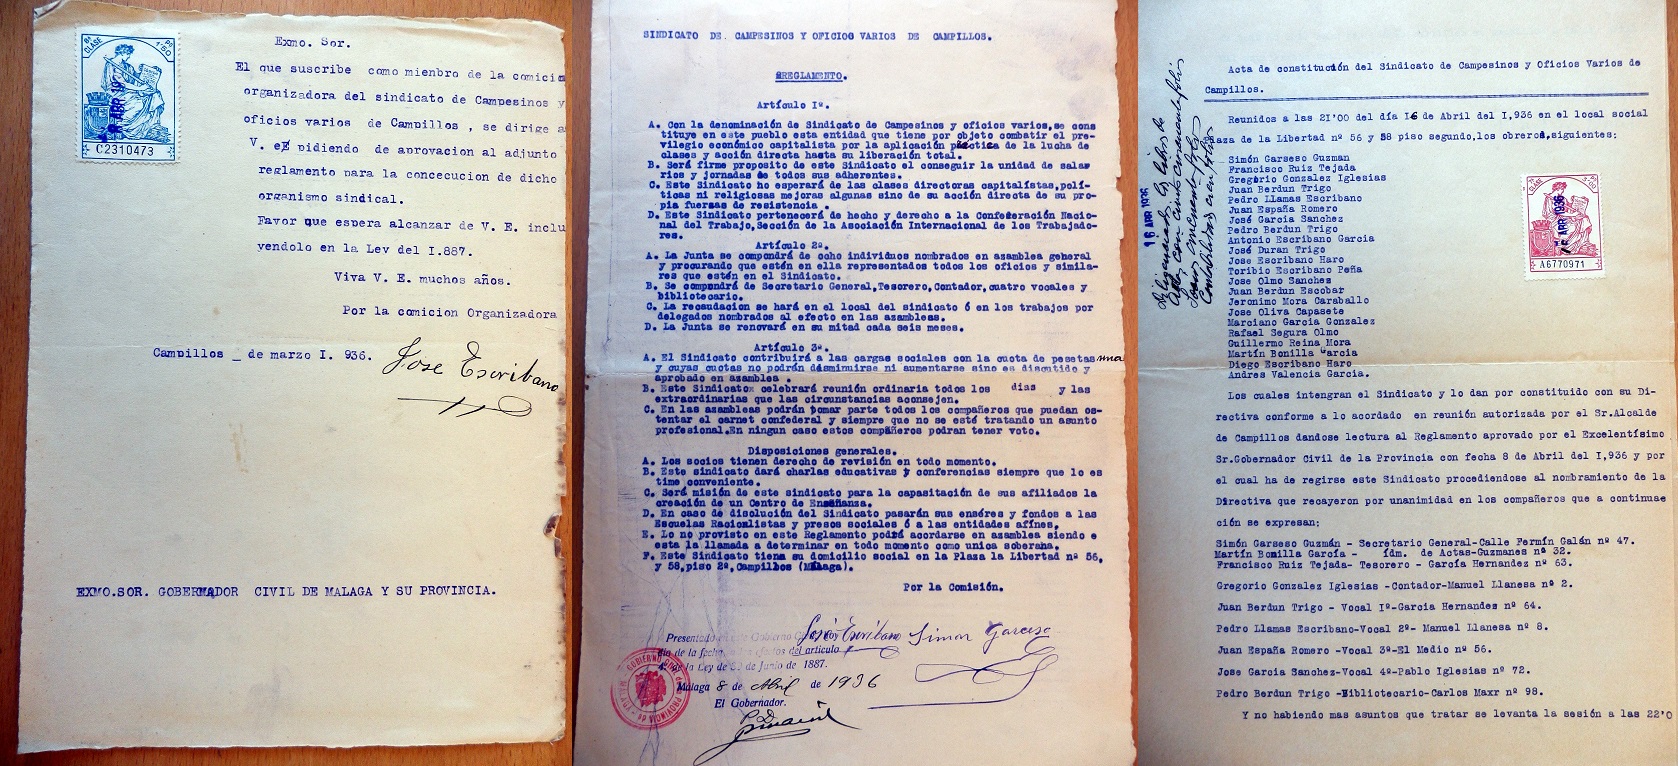 8ª CLASE
Pts 1'50
ABR 193
C2310473
Exmo. Sor.
El que suscribe como mienbro de la comicio
organizadora del sindicato de Campesinos y
oficios varios de Campillos , se dirige a
V. e pidiendo de aprovacion al adjunto
reglamento para la concecucion de dicho
organismo sindical.
Favor que espera alcanzar de V. E. inclu
yendolo en la Ley del I.887.
Viva V. E. muchos años.
Por la comicion Organizadora
Campillos _ de marzo I. 936.
Jose Escribano
EXMO.SOR. GOBERNADOR CIVIL DE MALAGA Y SU PROVINCIA.
SINDICATO DE CAMPESINOS Y OFICIOO VARIOS DE CAMPILLOS.
RREGLAMENTO.
Artículo 1º.
A. Con la denominación de Sindicato de Campesinos y oficios varios,se cons
tituye en este pueblo esta entidad que tiene por objeto combatir el pre-
vilegio económico capitalista por la aplicación práctica de la lucha de
clases y acción directa hasta su liberación total.
B. Será firme proposito de este Sindicato el conseguir la unidad de salar
rios y jornadas de todos sus adherentes.
C. Este Sindicato ho esperará de las clases directoras capitalístas,polí-
ticas ni religiosas mejoras algunas sino de su acción directa de su pro-
pia fuersas de resistencia .
D. Este Sindicato pertenecerá de hecho y derecho a la Confederación Nacio-
nal del Trabajo,Sección de la Asociación Internacional de los Trabajado-
res.
Artículo 2º.
A. La Junta se compondrá de ocho individuos nombrados en azamblea general
y procurando que estén en ella representados todos los oficios y simila-
res que estén en el Sindicato.
B. Se compondrá de Secretario General,Tesorero,Contador,cuatro vocales y
bibliotecario.
C. La recaudacion se hará en el local del sindicato ó en los trabajos por
delegados nombrados al efecto en las azambleas.
D. La Junta se renovará en su mitad cada seis meses.
Artículo 3º.
A. El Sindicato contribuirá a las cargas sociales con la cuota de pesetas una
y cuyas cuotas no podrán dásminuirse ni aumentarse sino es discutido y
aprobado en azamblea .
B. Este Sindicato celebrará reunión ordinaria todos los dias y las
extraordinarias que las circunstancias aconsejen.
C. En las azambleas podrán tomar parte todos los compañeros que puedan os-
tentar el carnet confederal y siempre que no se esté tratando un asunto
profesional.En ningun caso estos compañeros podran tener voto.
Disposiciones generales.
A. Los socios tienen derecho de revisión en todo momento.
B. Este sindicato dará charlas educativas y conferencias siempre que lo es
time conveniente.
C. Será misión de este sindicato para la capasitación de sus afiliados la
creación de un Centro de Enseñanza.
D. En caso de disolución del Sindicato pasarán sus enséres y fondos a las
Escuelas Racionalistas y presos sociales ó a las entidades afines.
E. Lo no provisto en este Reglamento podrá acordarse en azamblea siendo e
esta la llamada a determinar en todo momento como unica soberana.
F. Este Sindicato tiene su domicilio social en la Plaza la Libertad nº 56,
y 58,piso 2º,Campillos (Málaga).
Por la Comisión.
José Escribano Simon Garseso
Presentado en este Gobierno Civil hoy
día de la fecha, a los efectos del artículo
4º de la Ley de 30 de Junio de 1887.
Málaga 8 de Abril de 1936
El Gobernador.
GOBIERNO CIVIL DE LA PROVINCIA DE MALAGA
Acta de constitución del Sindicato de Campesinos y Oficios Varios de
Campillos.
Reunidos a las 21'00 del día 16 de Abril del I,936 en el local social
plaza de la Libertad nº 56 y 58 piso segundo,los obreros,siguientes:
16 ABR 1936
Simón Garseso Guzman
Francisco Ruiz Tejada
Gregorio Gonzalez Iglesias
Juan Berdun Trigo
Pedro Llamas Escribano
Juan España Romero
José Garcia Sanchez
Pedro Berdun Trigo
Antonio Escribano Garcia
José Duran Trigo
Jose Escribano Haro
Toribio Escribano Peña
Jose Olmo Sanchez
Juan Berdun Escobar
Jeronimo Mora Caraballo
Jose Oliva Capasete
Marciano Garcia Gonzalez
Rafael Segura Olmo
Guillermo Reina Mora
Martín Bonilla Garcia
Diego Escribano Haro
Andres Valencia Garcia.
16 ABR 1936
A6770971
Los cuales intengran el Sindicato y lo dan por constituido con su Di-
rectiva conforme a lo acordado en reunión autorizada por el Sr.Alcalde
de Campillos dandose lectura al Reglamento aprovado por el Excelentísimo
Sr.Gobernador Civil de la Provincia con fecha 8 de Abril del I,936 y por
el cual ha de regirse este Sindicato procediendose al nombramiento de la
Directiva que recayeron por unanimidad en los compañeros que a continuae
ción se expresan;
Simón Garseso Guzmán - Secretario General-Calle Fermín Galán nº 47.
Martín Bonilla García - ídm. de Actas-Guzmanes nª 32.
Francisco Ruiz Tejada- Tesorero - García Hernandez nº 63.
Gregorio Gonzalez Iglesias -Contador-Manuel Llanesa nº 2.
Juan Berdun Trigo - Vocal Iº-Garcia Hernandes nº 64.
Pedro Llamas Escribano-Vocal 2º- Manuel Llanesa nº 8.
Juan España Romero -Vocal 3º-El Medio nº 56.
Jose Garcia Sanchez-Vocal 4º-Pablo Iglesias nº 72.
Pedro Berdun Trigo -Bibliotecario-Carlos Maxr nº 98.
Y no habiendo mas asuntos que tratar se levanta la sesión a las 22'0